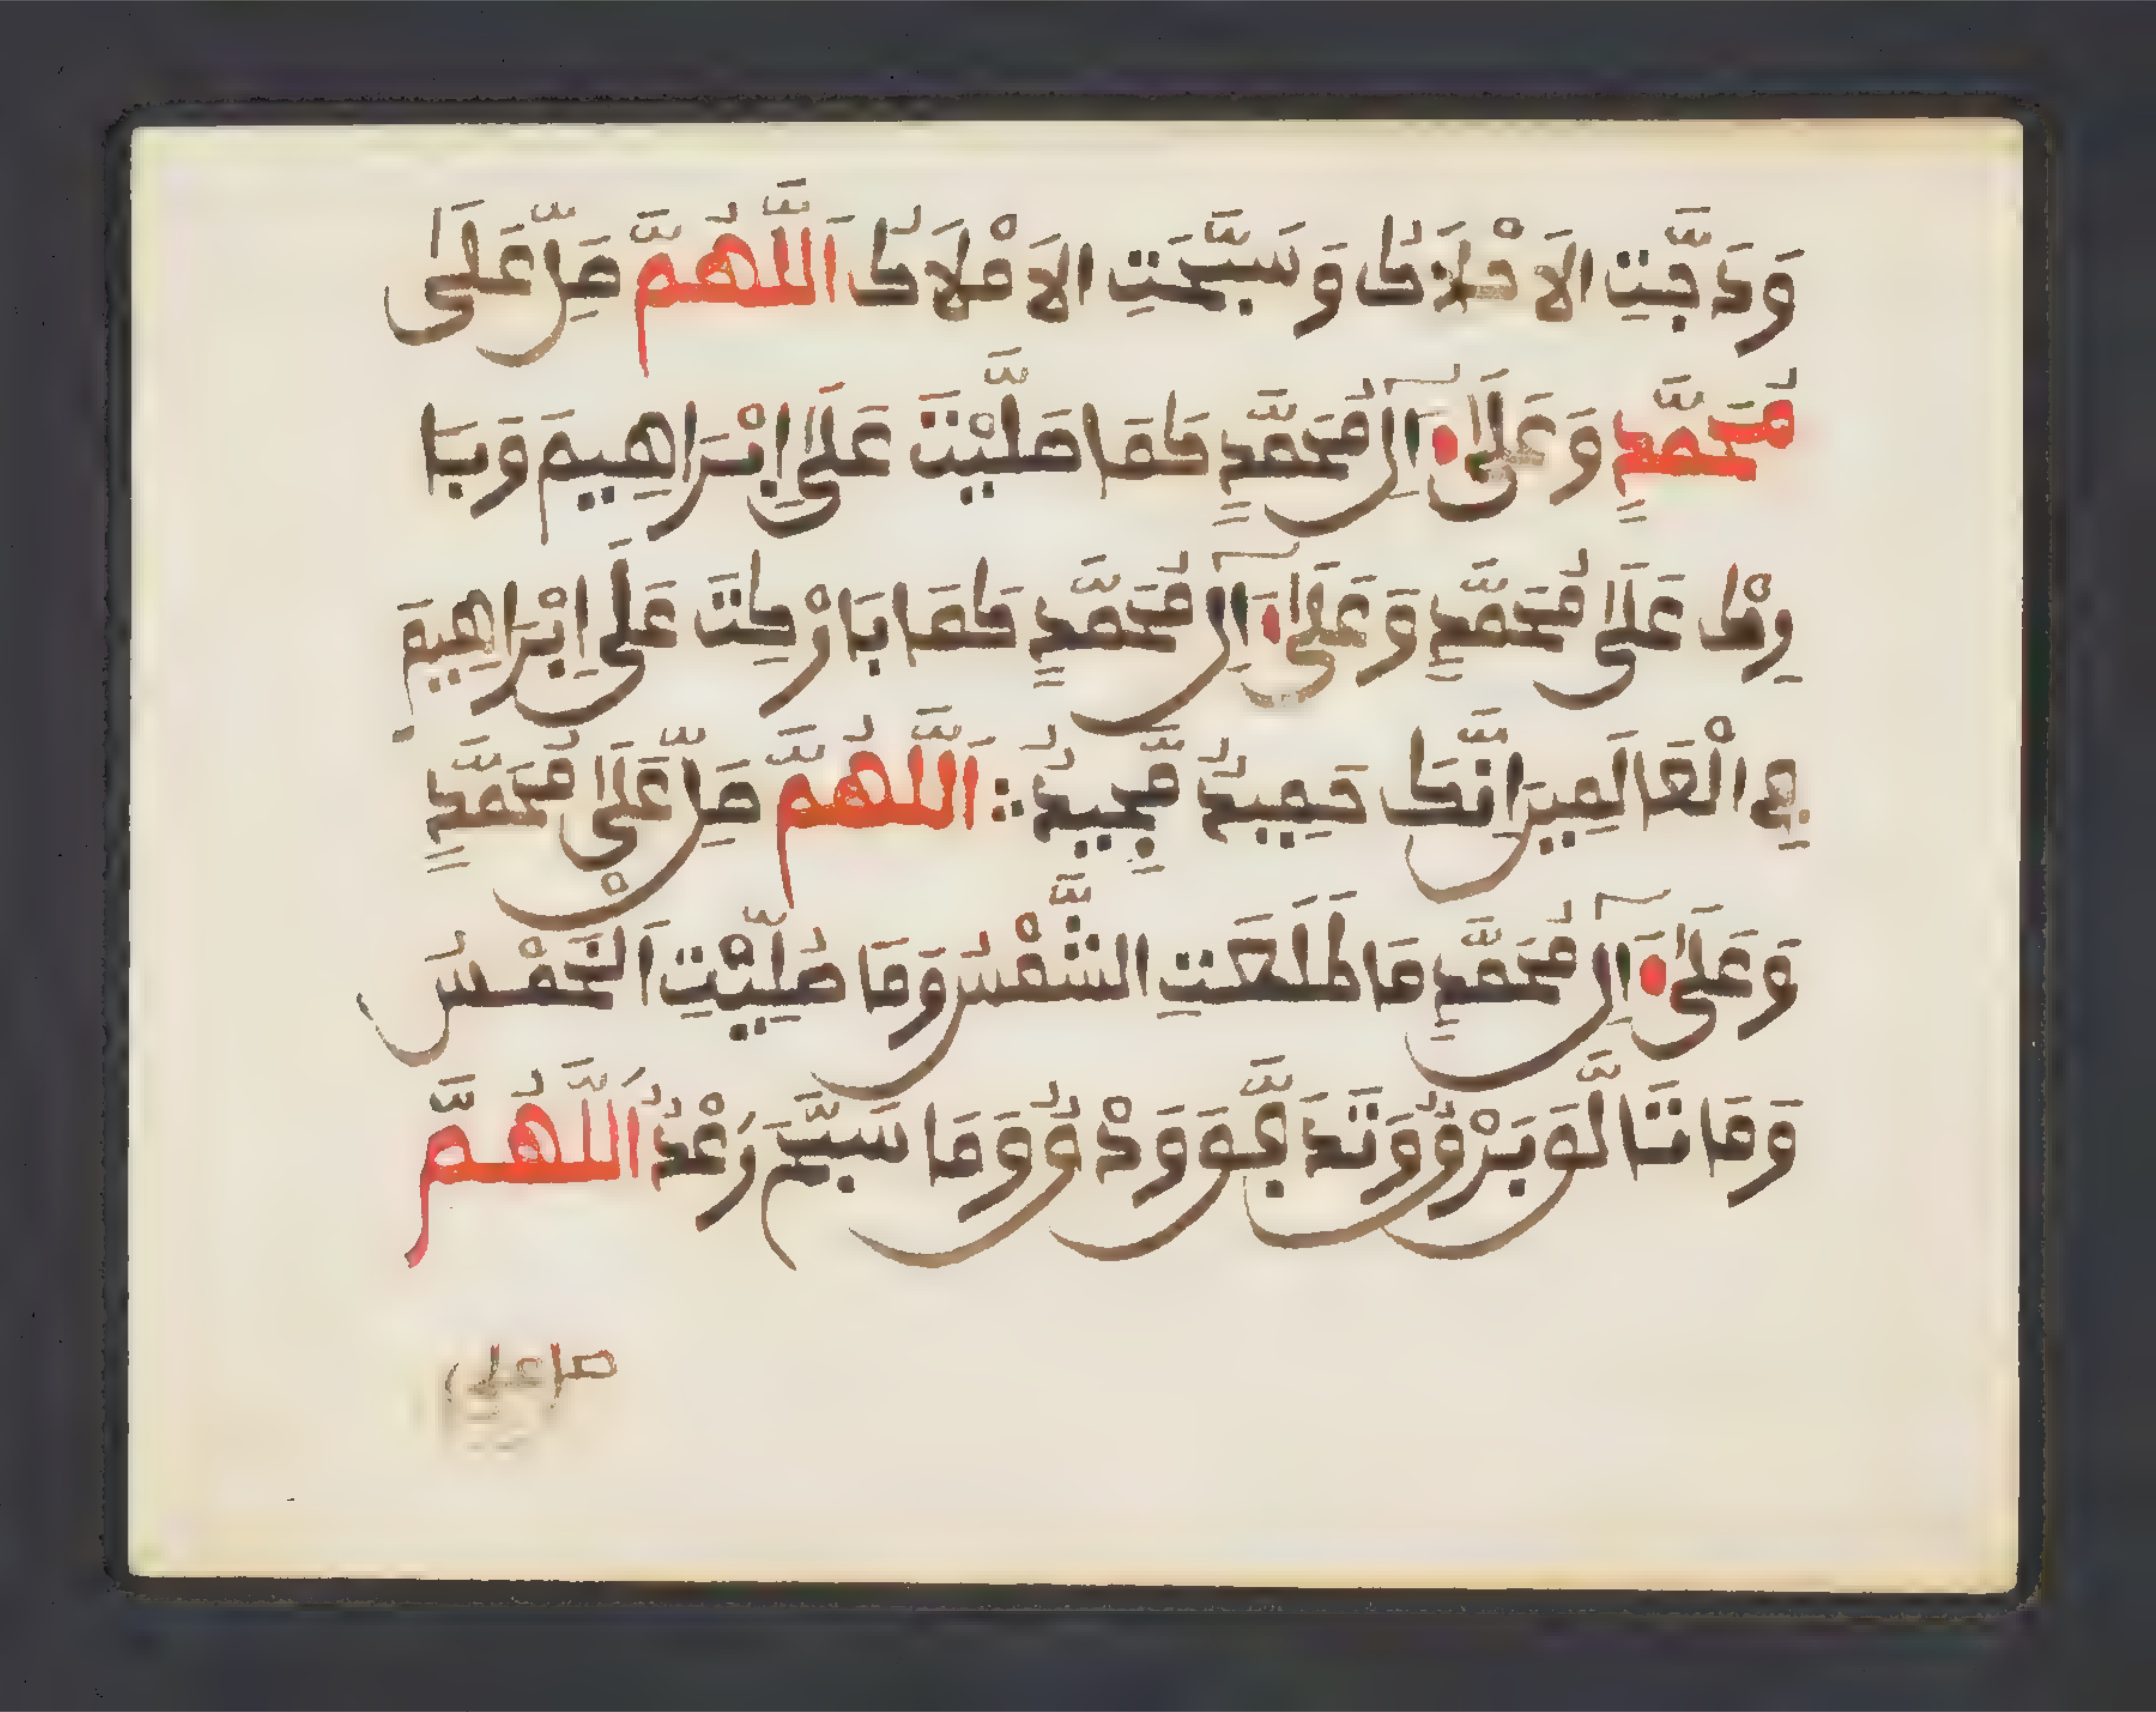 وَدَجَّتِ الاَحْلَاكُ وَسَبَّحَتِ الاَمْلَاكُ اَللَّهُمَّ صَلِّ عَلَىٰ
مُحَمَّدٍ وَعَلَىٰٓ ءَالِ مُحَمَّدٍ كَمَا صَلَّيْتَ عَلَىٰٓ إِبْرَاهِيمَ وَبَا
رِكْ عَلَىٰ مُحَمَّدٍ وَعَلَىٰٓ ءَالِ مُحَمَّدٍ كَمَا بَارَكْتَ عَلَىٰٓ إِبْرَاهِيمَ
فِي الْعَالَمِينَ إِنَّكَ حَمِيدٌ مَّجِيدٌ ∴ اَللَّهُمَّ صَلِّ عَلَىٰ مُحَمَّدٍ
وَعَلَىٰٓ ءَالِ مُحَمَّدٍ مَا طَلَعَتِ الشَّمْسُ وَمَا صُلِّيَتِ اَلْخَمْسُ
وَمَا تَأَلَّقَ بَرْقٌ وَتَدَفَّقَ وَدْقٌ وَمَا سَبَّحَ رَعْدٌ اَللَّهُمَّ
صل على